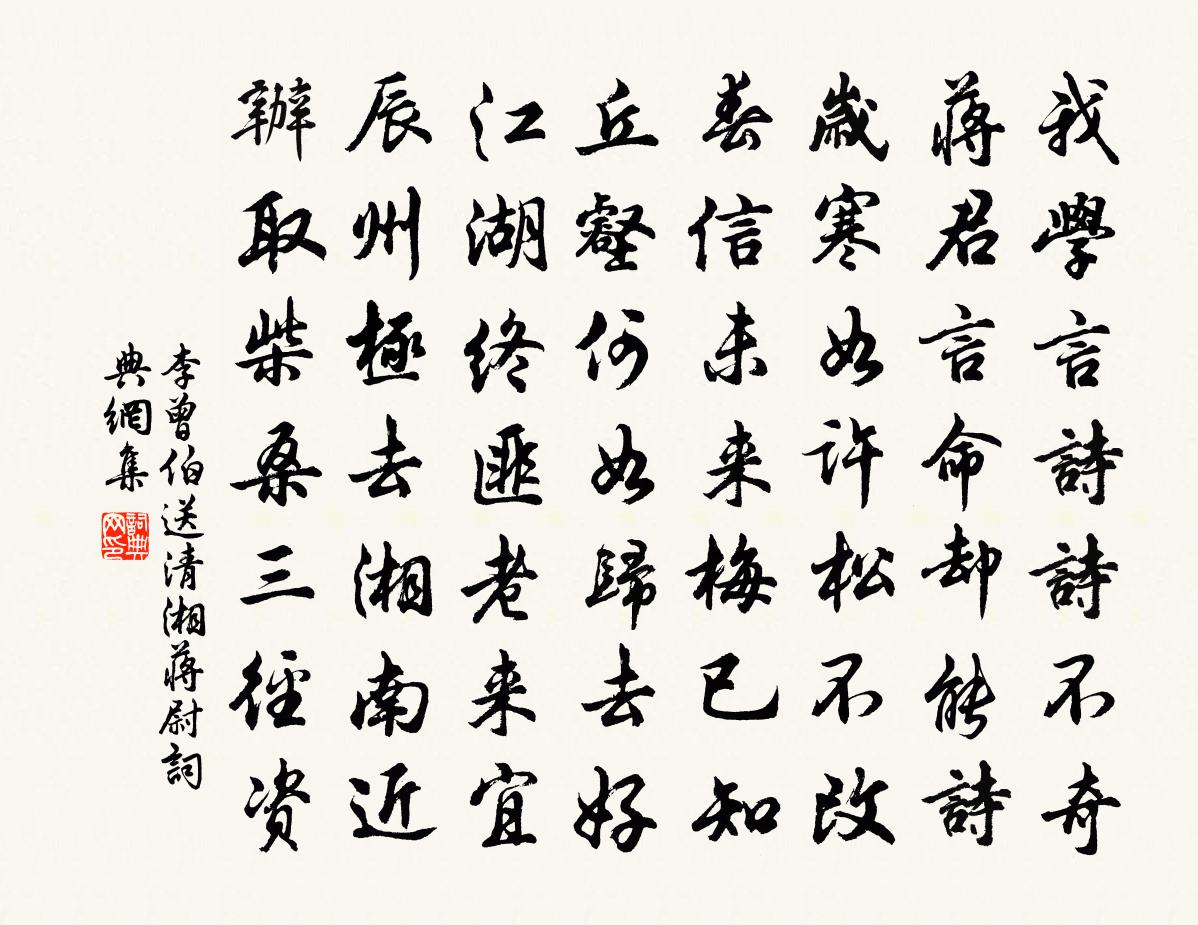 我學言詩詩不奇
蔣君言命却能詩
歲寒如許松不改
春信未来梅已知
丘壑何如歸去好
江湖終匪老来宜
辰州極去湘南近
辦取柴桑三徑資
李曾伯送清湘蔣尉詞
典網集
詞典
网印